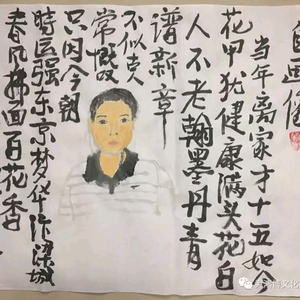 自画像
当年离家才十五如今
花甲犹健康满头花白
人不老翰墨丹青
谱新章
不似克
常慨叹
只因今朝
时运强东京梦华汴梁城
春风拂面百花香